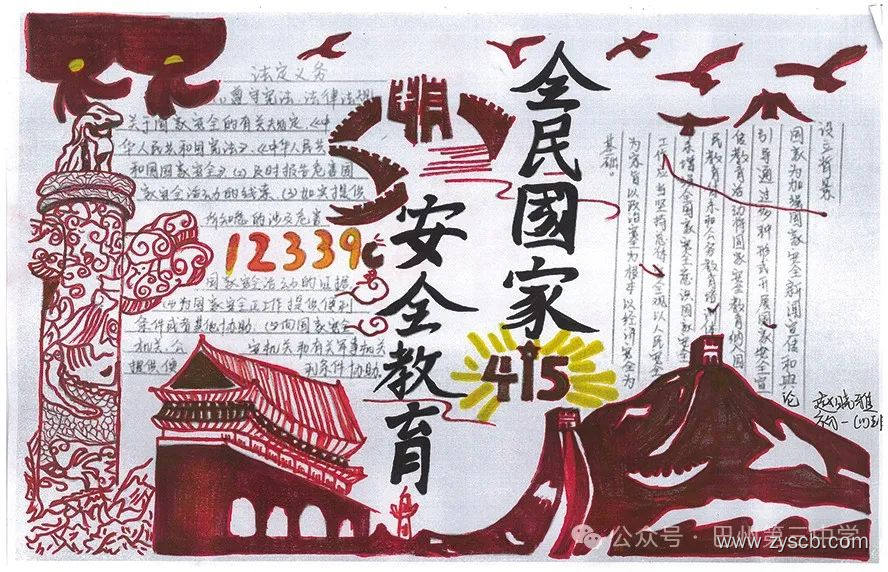 全民國家
安全教育
415
法定义务
(1)遵守宪法、法律法规
关于国家安全的有关规定,《中
华人民共和国宪法》、《中华人民共
和国国家安全》(2)及时报告危害国
家安全活动的线索。(3)如实提供
所知悉的涉及危害
12339
国家安全活动的证据
(4)为国家安全工作提供便利
条件或者其他协助。(5)向国家安全
机关、公 安机关和有关军事机关
提供便 利条件协助。
设立背景
国家为加强国家安全新闻宣传和舆论
引导通过多种形式开展国家安全宣
传教育活动将国家安全教育纳入国
民教育体系和公务教育培
工作应当坚持总体 全观以人民安全
为宗旨以政治安全为根本以经济安全为
基础。
公众号
www.zyscb.com